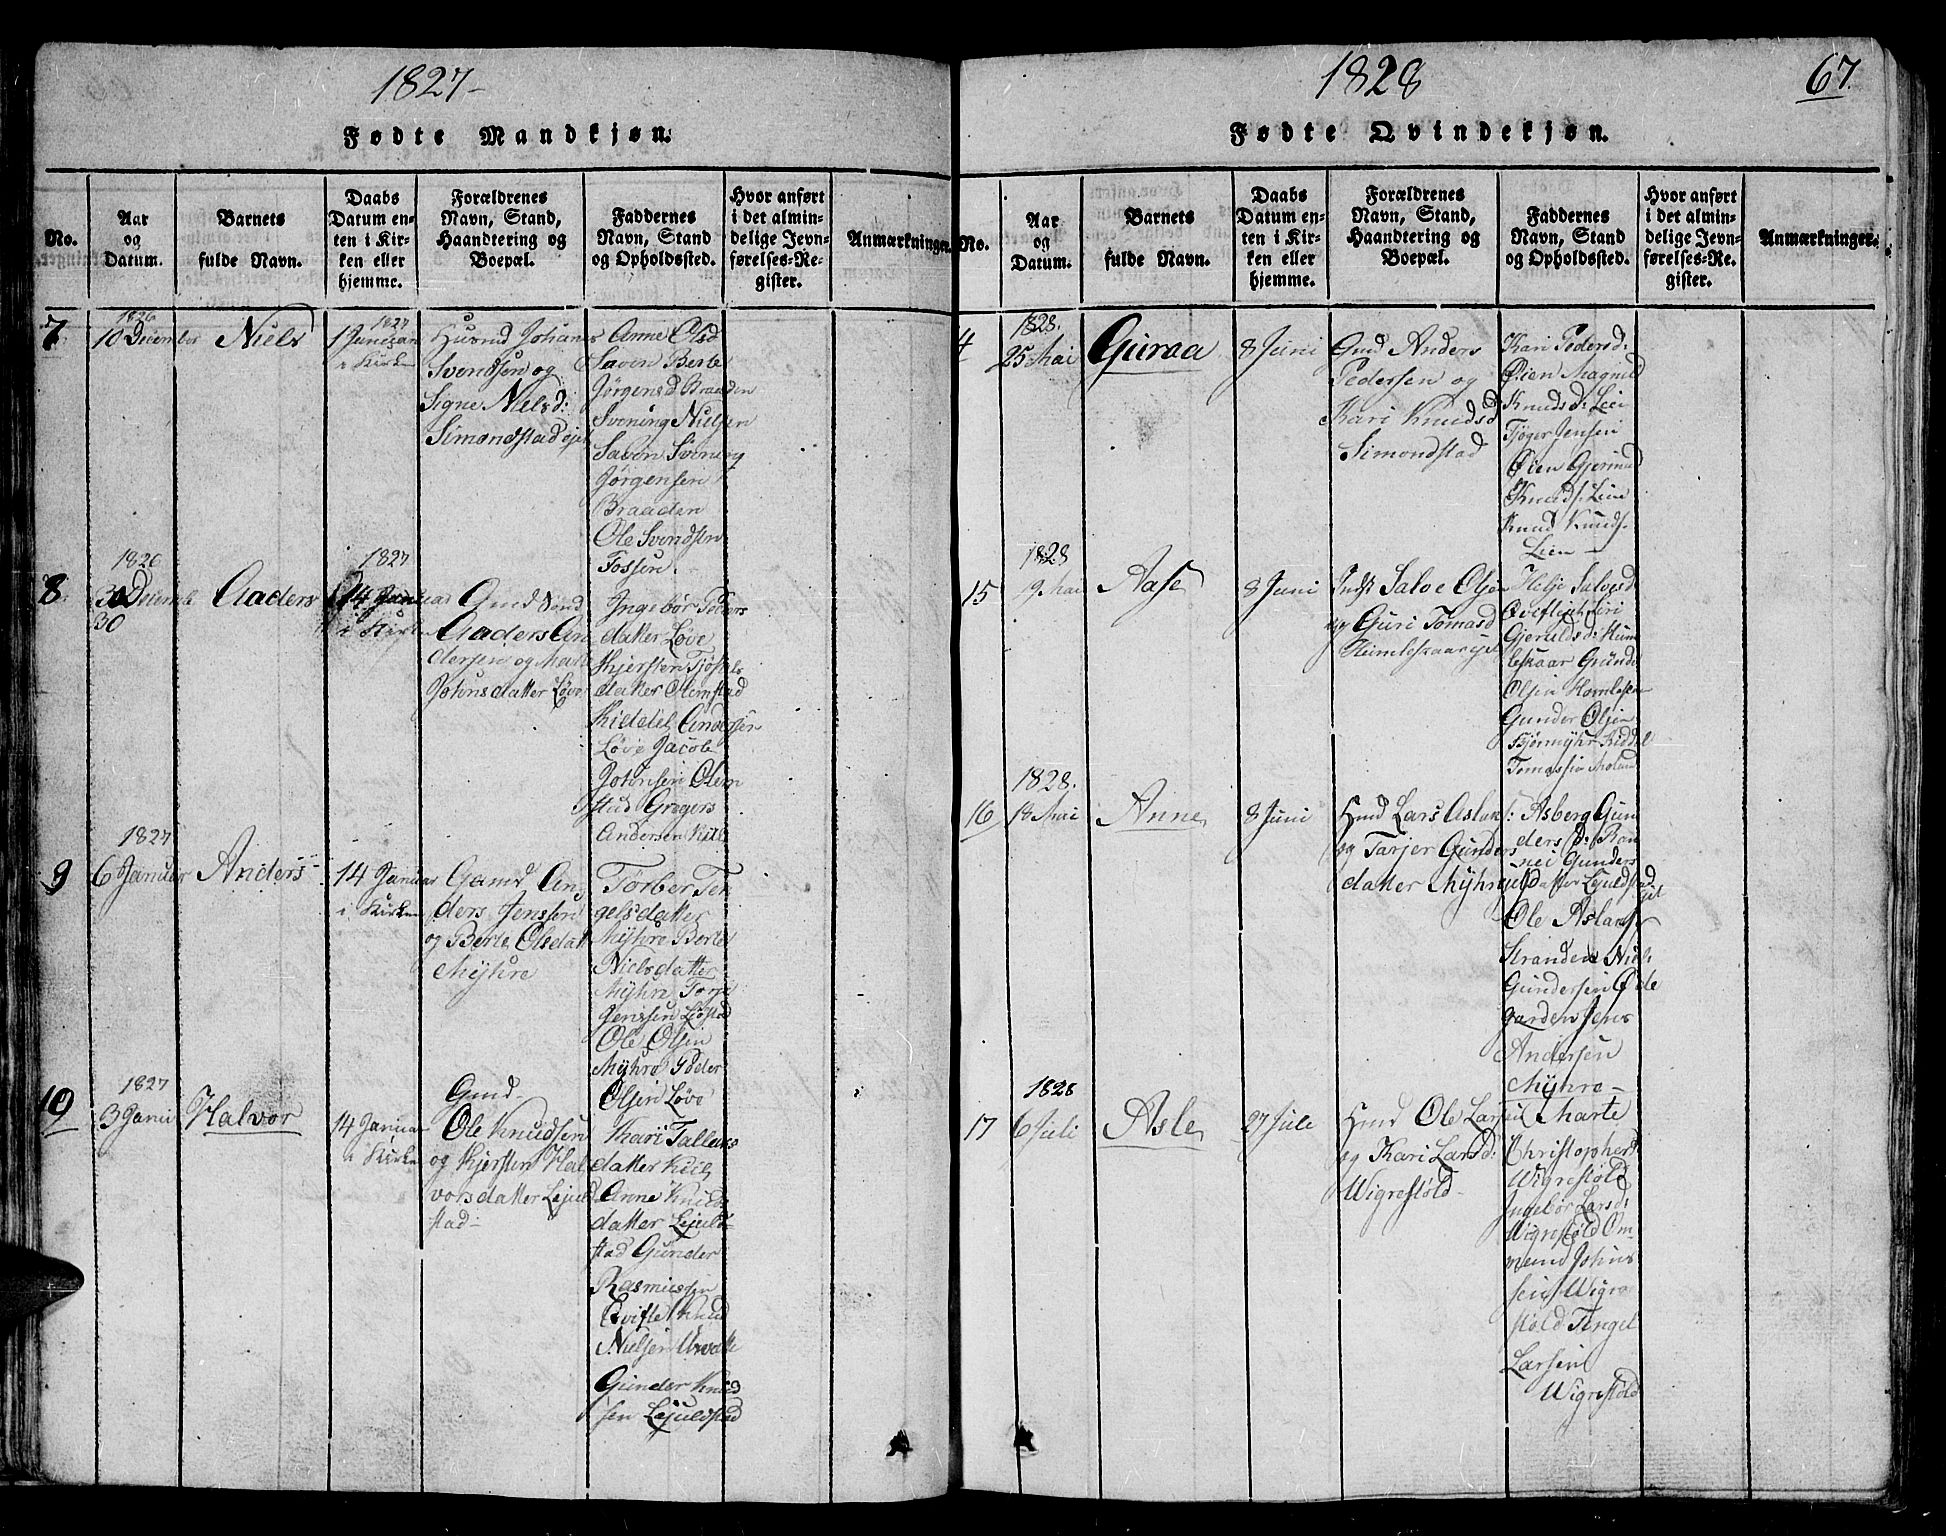 1827-
Fødte Mandkjøn.
No.
Aar
og
Datum.
Barnets
fulde Navn.
Daabs
Datum en-
ten i Kir-
ken eller
hjemme.
Forældrenes
Navn, Stand,
Haandtering og
Boepæl.
Faddernes
Navn, Stand
og Opholdssted.
Hvor anført
i det almin-
delige Jevn-
førelses-Re-
gister.
Anmærkninger.
7.
1826
10 December
Niels
1827
1 Januar
i Kirken
Huusmd Johannes
Svendsen og
Signe Nielsd:
Simonstad ejet
Anne Olsd
Saven Berte
Jørgensd Braaden
Svening Nielsen
Saven Svening
Jørgensen
Braaden
Ole Svendsen
Fossen
8.
1826
30 Decembr
30
Aaders
1827
14 Januar
i Kirken
Gmd
Aaders An
dersen og
Johnsdatter Løve
Ingebør Peders
datter Løve
Kjersten
datter Olimstad
Kiddel Andersen
Løve Jacob
Johnsen Olim
stad Gregers
Andersen Kile
9
1827
6 Januar
Anders
14 Januar
i Kirken
Gamd An
ders Jenssen
og Berte Olsdatt
Myhre
Torber Ten
gelsdatter
Myhre Berte
Nielsdatter
Myhre Torje
Jenssen
Ole Olsen
Myhre Peder
Olsen Løve
10
1827
3 Janu
Halvor
14 Januar
i Kirken
Gmd.
Ole Knudsen
og Kjersten Hal
vorsdatter Lejuld
stad-
Kari Tallevs
datter Kiil
Anne Knuds
datter Lejuld
stad Gunder
Rasmussen
Qvifte Knud
Nielsen
Gunder Knud
sen Lejuldstad
1828
67.
Fødte Qvindekjøn.
No.
Aar
og
Datum.
Barnets
fulde Navn.
Daabs
Datum en-
ten i Kir-
ken eller
hjemme.
Forældrenes
Navn, Stand,
Haandtering og
Boepæl.
Faddernes
Navn, Stand
og Opholdssted.
Hvor anført
i det almin-
delige Jevn-
førelses-Re-
gister.
Anmærkninger.
4
1828.
25 Mai
Guraa
8 Juni
Gmd Anders
Pedersen og
Kari Knudsd
Simondstad
Kari Pedersd:
Øien Magnild
Knudsd: Lien
Tjøger Jensen
Øien Gjermund
Knuds: Lien
Knud Knuds.
Lien
15
1828
9 Mai
Aase
8 Juni
Indst Salve Olsen
og Guri Tomasd
Humleskaar ejet
Helje Salvesd
Qviflie
Gjeruldsd: Hum
leskaar Gunde
Olsen Homle
Gunder Olsen
Bjørmyhr Kiddel
Tomassen
16
1828.
18 Mai
Anne
8 Juni
Hmd Lars Aslak:
og Tarjer Gunders
datter Myhre
Asberg Gun
ders D: Ron
nei Gunders
datter Lejuldstad
Ole Aslaks
Stranden Niels
Gundersen Øde
garden Jens
Andersen
Myhre-
17
1828
6 Juli
Asle
27 Jule
Hmd Ole Larsen
og Kari Larsd:
Wigrestøld-
Marte
Christophersd
Wigrestøld
Ingebør Larsd:
Wigrestøld Om
mund Johns
sen Wigre
støld Tengel
Larsen
Wigrestøld